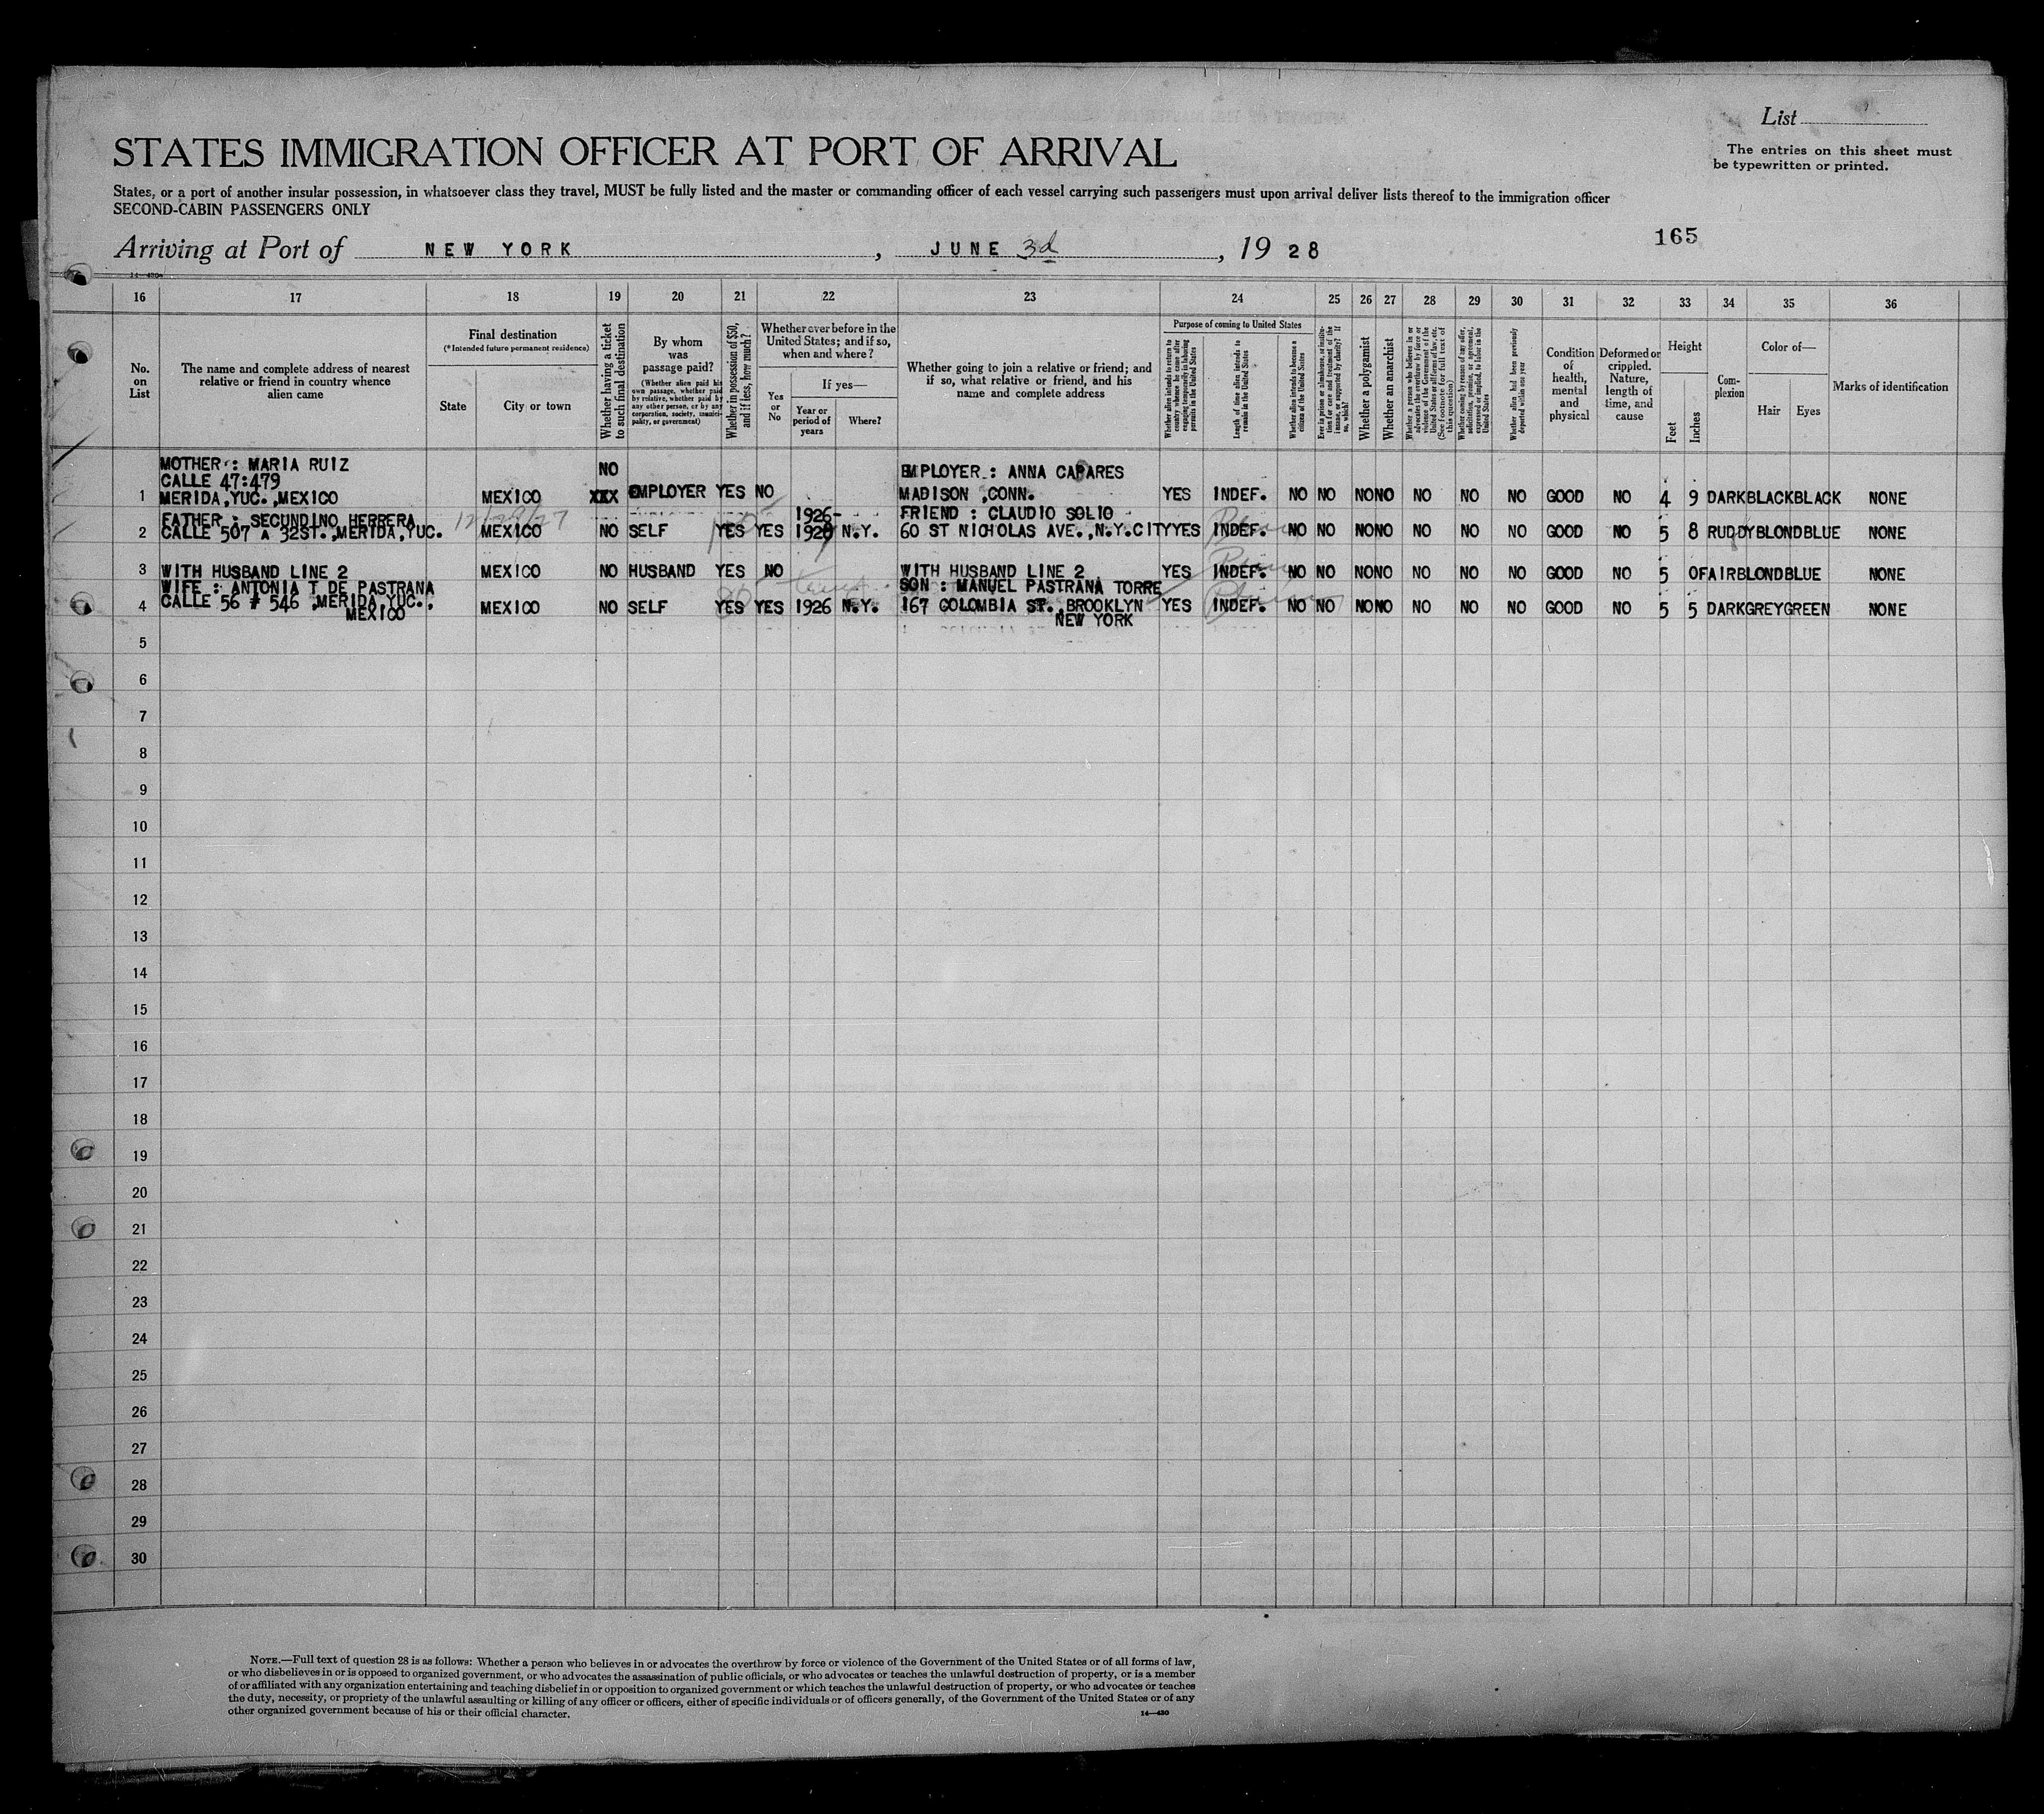 List
The entries on this sheet must
be typewritten or printed.
STATES IMMIGRATION OFFICER AT PORT OF ARRIVAL
States, or a port of another insular possession, in whatsoever class they travel, MUST be fully listed and the master or commanding officer of each vessel carrying such passengers must upon arrival deliver lists thereof to the immigration officer
SECOND-CABIN PASSENGERS ONLY
Arriving at Port of NEW YORK, JUNE 3d, 1928
165
14—430
16 17 18 19 20 21 22 23 24 25 26 27 28 29 30 31 32 33 34 35 36
No. on List
The name and complete address of nearest
relative or friend in country whence
alien came
Final destination
(*Intended future permanent residence)
State
City or town
Whether having a ticket
to such final destination
By whom
was
passage paid?
(Whether alien paid his
own passage, whether paid
by relative, whether paid by
any other person, or by any
corporation, society, munici-
pality, or government)
Whether in possession of $50,
and if less, how much?
Whether ever before in the
United States; and if so,
when and where?
Yes
or
No
If yes—
Year or
period of
years
Where?
Whether going to join a relative or friend; and
if so, what relative or friend, and his
name and complete address
Purpose of coming to United States
Whether alien intends to return to
country whence he came after
engaging temporarily in laboring
pursuits in the United States
Length of time alien intends to
remain in the United States
Whether alien intends to become a
citizen of the United States
Ever in prison or almshouse, or institu-
tion for care and treatment of the
insane, or supported by charity? If
so, which?
Whether a polygamist
Whether an anarchist
Whether a person who believes in or
advocates the overthrow by force or
violence of the Government of the
United States or all forms of law, etc.
(See footnote for full text of
this question)
Whether coming by reason of any offer,
solicitation, promise, or agreement,
expressed or implied, to labor in the
United States
Whether alien had been previously
deported within one year
Condition
of
health,
mental
and
physical
Deformed or
crippled.
Nature,
length of
time, and
cause
Height
Feet
Inches
Com-
plexion
Color of—
Hair
Eyes
Marks of identification
MOTHER : MARIA RUIZ
CALLE 47:479 NO EMPLOYER : ANNA CAPARES
1 MERIDA,YUC.,MEXICO MEXICO XXX EMPLOYER YES NO MADISON ,CONN. YES INDEF. NO NO NO NO NO NO NO GOOD NO 4 9 DARK BLACK BLACK NONE
FATHER : SECUNDINO HERRERA 12/29/27 1926- FRIEND : CLAUDIO SOLIO
2 CALLE 507 A 32ST.,MERIDA,YUC. MEXICO NO SELF YES YES 192 N.Y. 60 ST NICHOLAS AVE.,N.Y.CITY YES INDEF. NO NO NO NO NO NO NO GOOD NO 5 8 RUDDY BLOND BLUE NONE
3 WITH HUSBAND LINE 2 MEXICO NO HUSBAND YES NO WITH HUSBAND LINE 2 YES INDEF. NO NO NO NO NO NO NO GOOD NO 5 0 FAIR BLOND BLUE NONE
WIFE : ANTONIA T DE PASTRANA SON : MANUEL PASTRANA TORRE
4 CALLE 56 # 546 ,MERIDA,YUC., MEXICO NO SELF YES YES 1926 N.Y. 167 COLOMBIA ST.,BROOKLYN YES INDEF. NO NO NO NO NO NO NO GOOD NO 5 5 DARK GREY GREEN NONE
MEXICO NEW YORK
5
6
7
8
9
10
11
12
13
14
15
16
17
18
19
20
21
22
23
24
25
26
27
28
29
30
NOTE.—Full text of question 28 is as follows: Whether a person who believes in or advocates the overthrow by force or violence of the Government of the United States or of all forms of law,
or who disbelieves in or is opposed to organized government, or who advocates the assassination of public officials, or who advocates or teaches the unlawful destruction of property, or is a member
of or affiliated with any organization entertaining and teaching disbelief in or opposition to organized government or which teaches the unlawful destruction of property, or who advocates or teaches
the duty, necessity, or propriety of the unlawful assaulting or killing of any officer or officers, either of specific individuals or of officers generally, of the Government of the United States or of any
other organized government because of his or their official character.
14—430